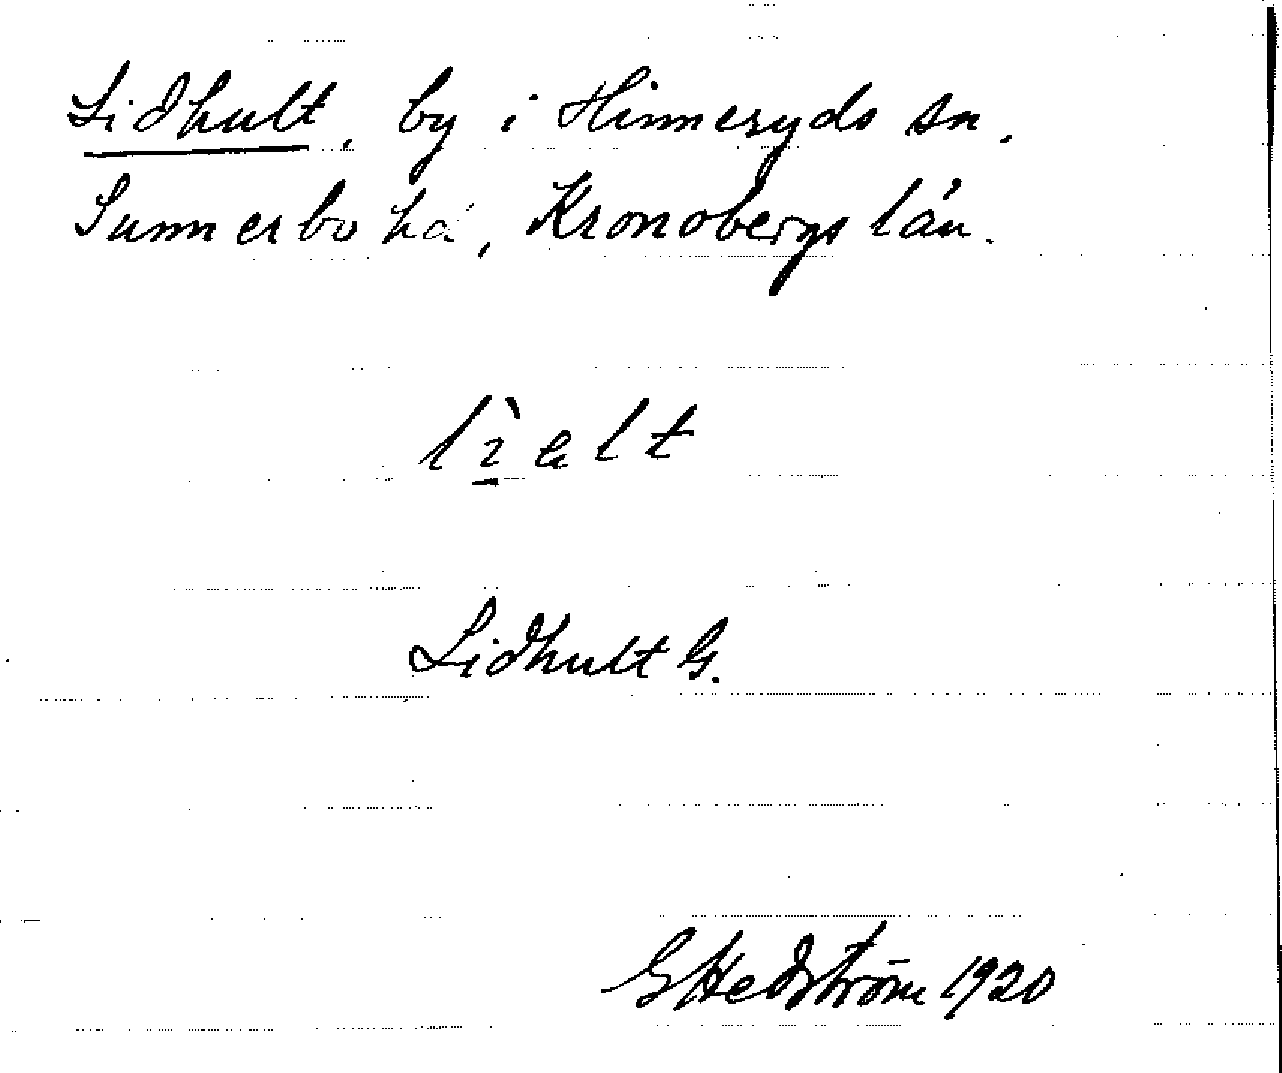 Lidhult, by i Hinneryds sn.
Sunnerbo hd, Kronobergs län.
Lidhult G.
GHedström 1920